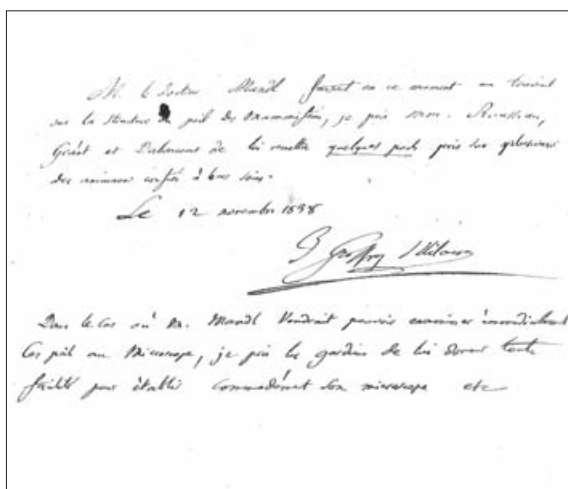 M. le Docteur Mandl faisant en ce moment un travail
sur la structure du poil des Mammifères, je prie Mrs. Rousseau,
Guérit et de lui remettre quelques poils pris sur plusieurs
des animaux confiés à leurs soins.
Le 12 novembre 1838
Geoffroy St hilaire
Dans le cas où M. Mandl voudrait pouvoir examiner immédiatement
ces poils au Microscope, je prie les gardiens de lui donner toute
facilité pour établir commodément son microscope etc